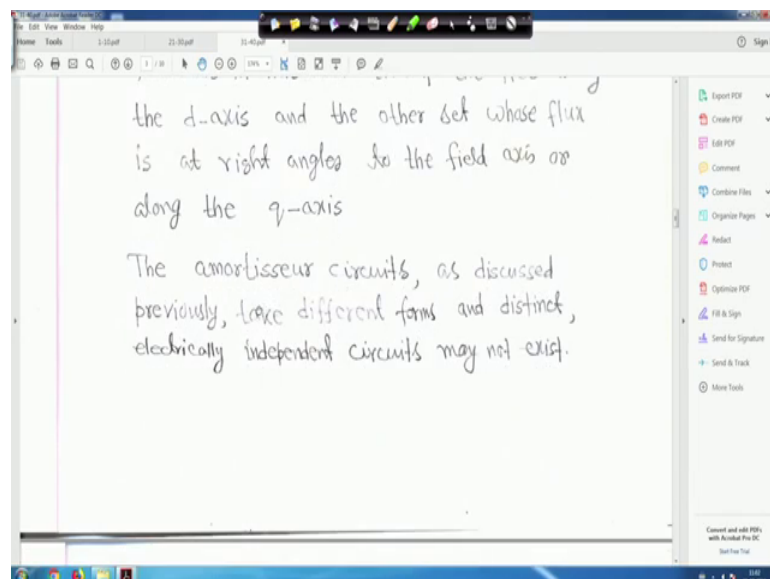 31-40.pdf - Adobe Acrobat Reader DC
File Edit View Window Help
Home Tools 1-10.pdf 21-30.pdf 31-40.pdf × Sign
1 / 10
the d-axis and the other set whose flux
is at right angles to the field axis or
along the q-axis
The amortisseur circuits, as discussed
previously, take different forms and distinct,
electrically independent circuits may not exist.
Export PDF
Create PDF
Edit PDF
Comment
Combine Files
Organize Pages
Redact
Protect
Optimize PDF
Fill & Sign
Send for Signature
Send & Track
More Tools
Convert and edit PDFs
with Acrobat Pro DC
Start Free Trial